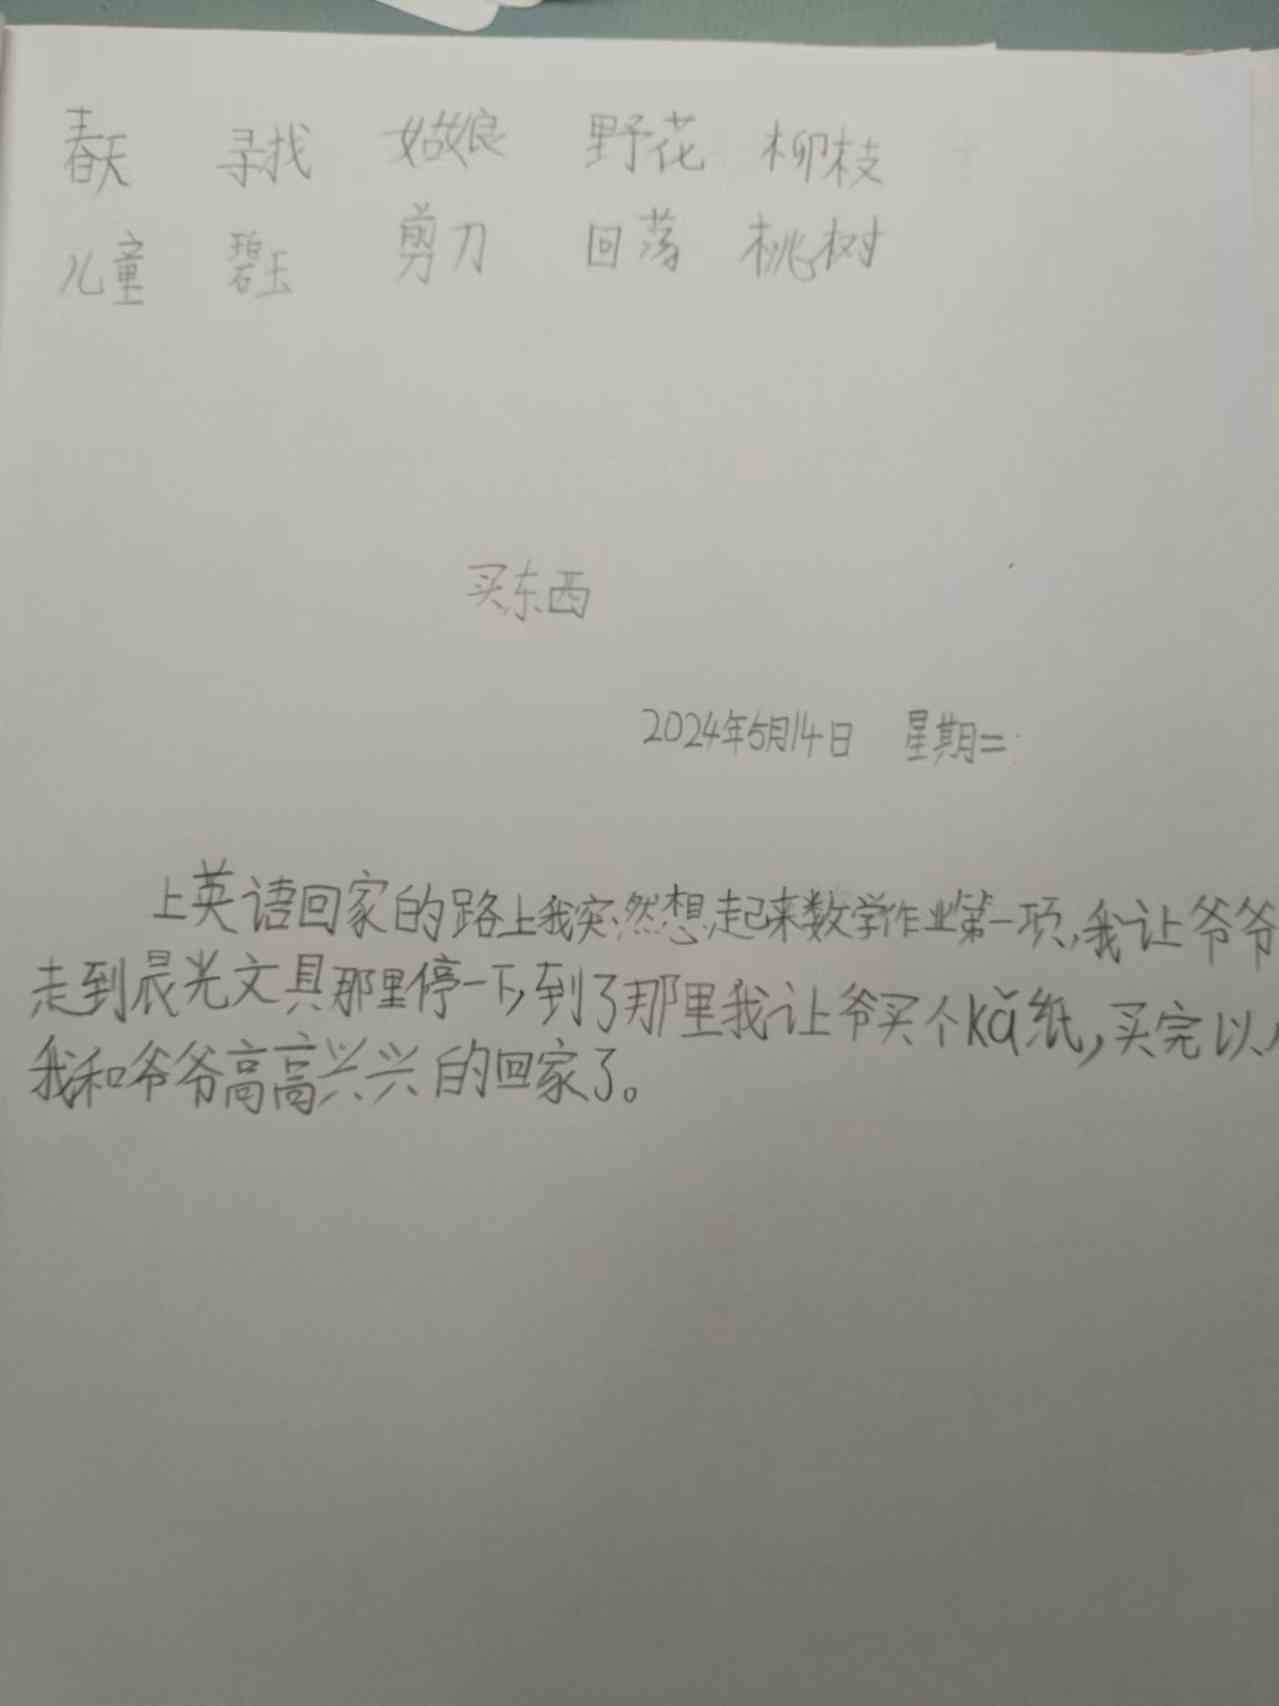 春天 寻找 姑娘 野花 柳枝
儿童 碧玉 剪刀 回荡 桃树
买东西
2024年5月14日 星期二
上英语回家的路上我突然想起来数学作业第一项,我让爷爷
走到晨光文具那里停一下,到了那里我让爷买个kǎ纸,买完以
我和爷爷高高兴兴的回家了。